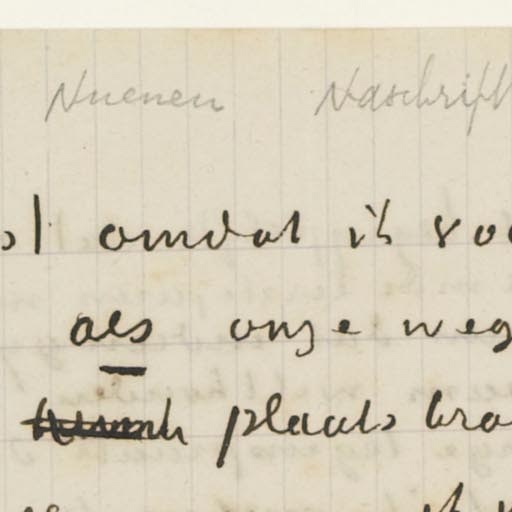 Nuenen Naschrift
omdat ik voo
als onze weg
plaats bra